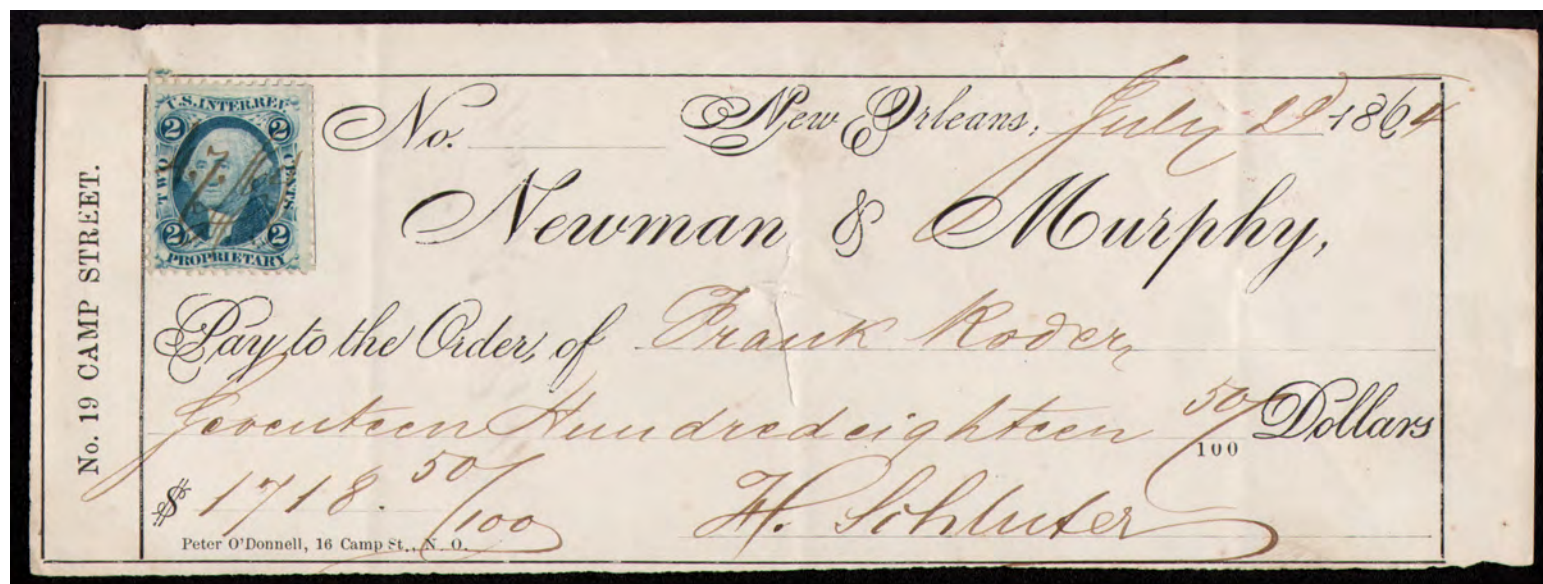 No. 19 CAMP STREET.
U.S. INTER. REV.
2 2
TWO CENTS
2 2
PROPRIETARY
No. New Orleans, July 2d 1864
Newman & Murphy,
Pay to the Order, of Frank Roder
Seventeen Hundred eighteen 50/100 Dollars
$ 1718. 50/100 H. Schluter
Peter O'Donnell, 16 Camp St., N. O.